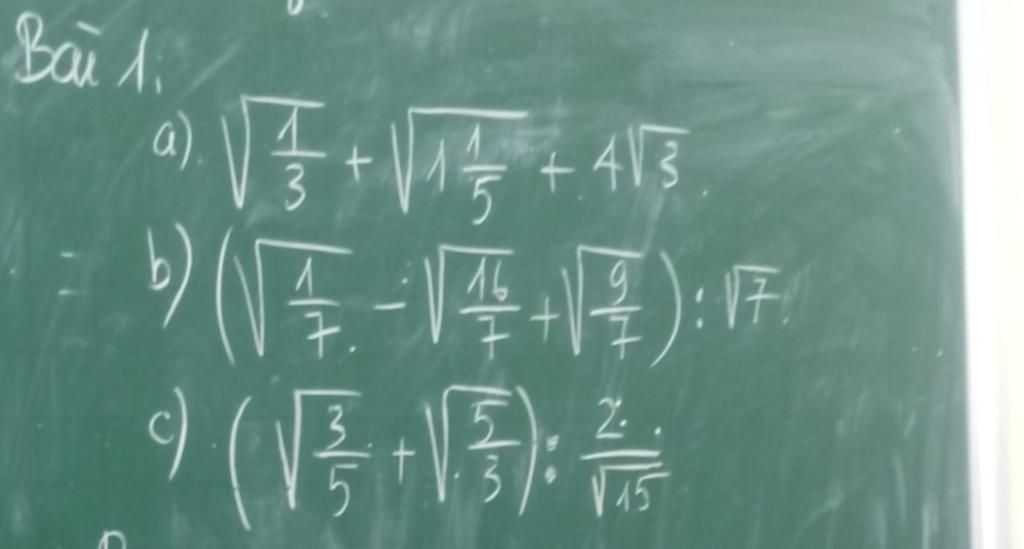 Bài 1.
a) √(1/3) + √(1 1/5) + 4√3
b) (√(1/7) - √(16/7) + √(9/7)) : √7
c) (√(3/5) + √(5/3)) : 2/√15